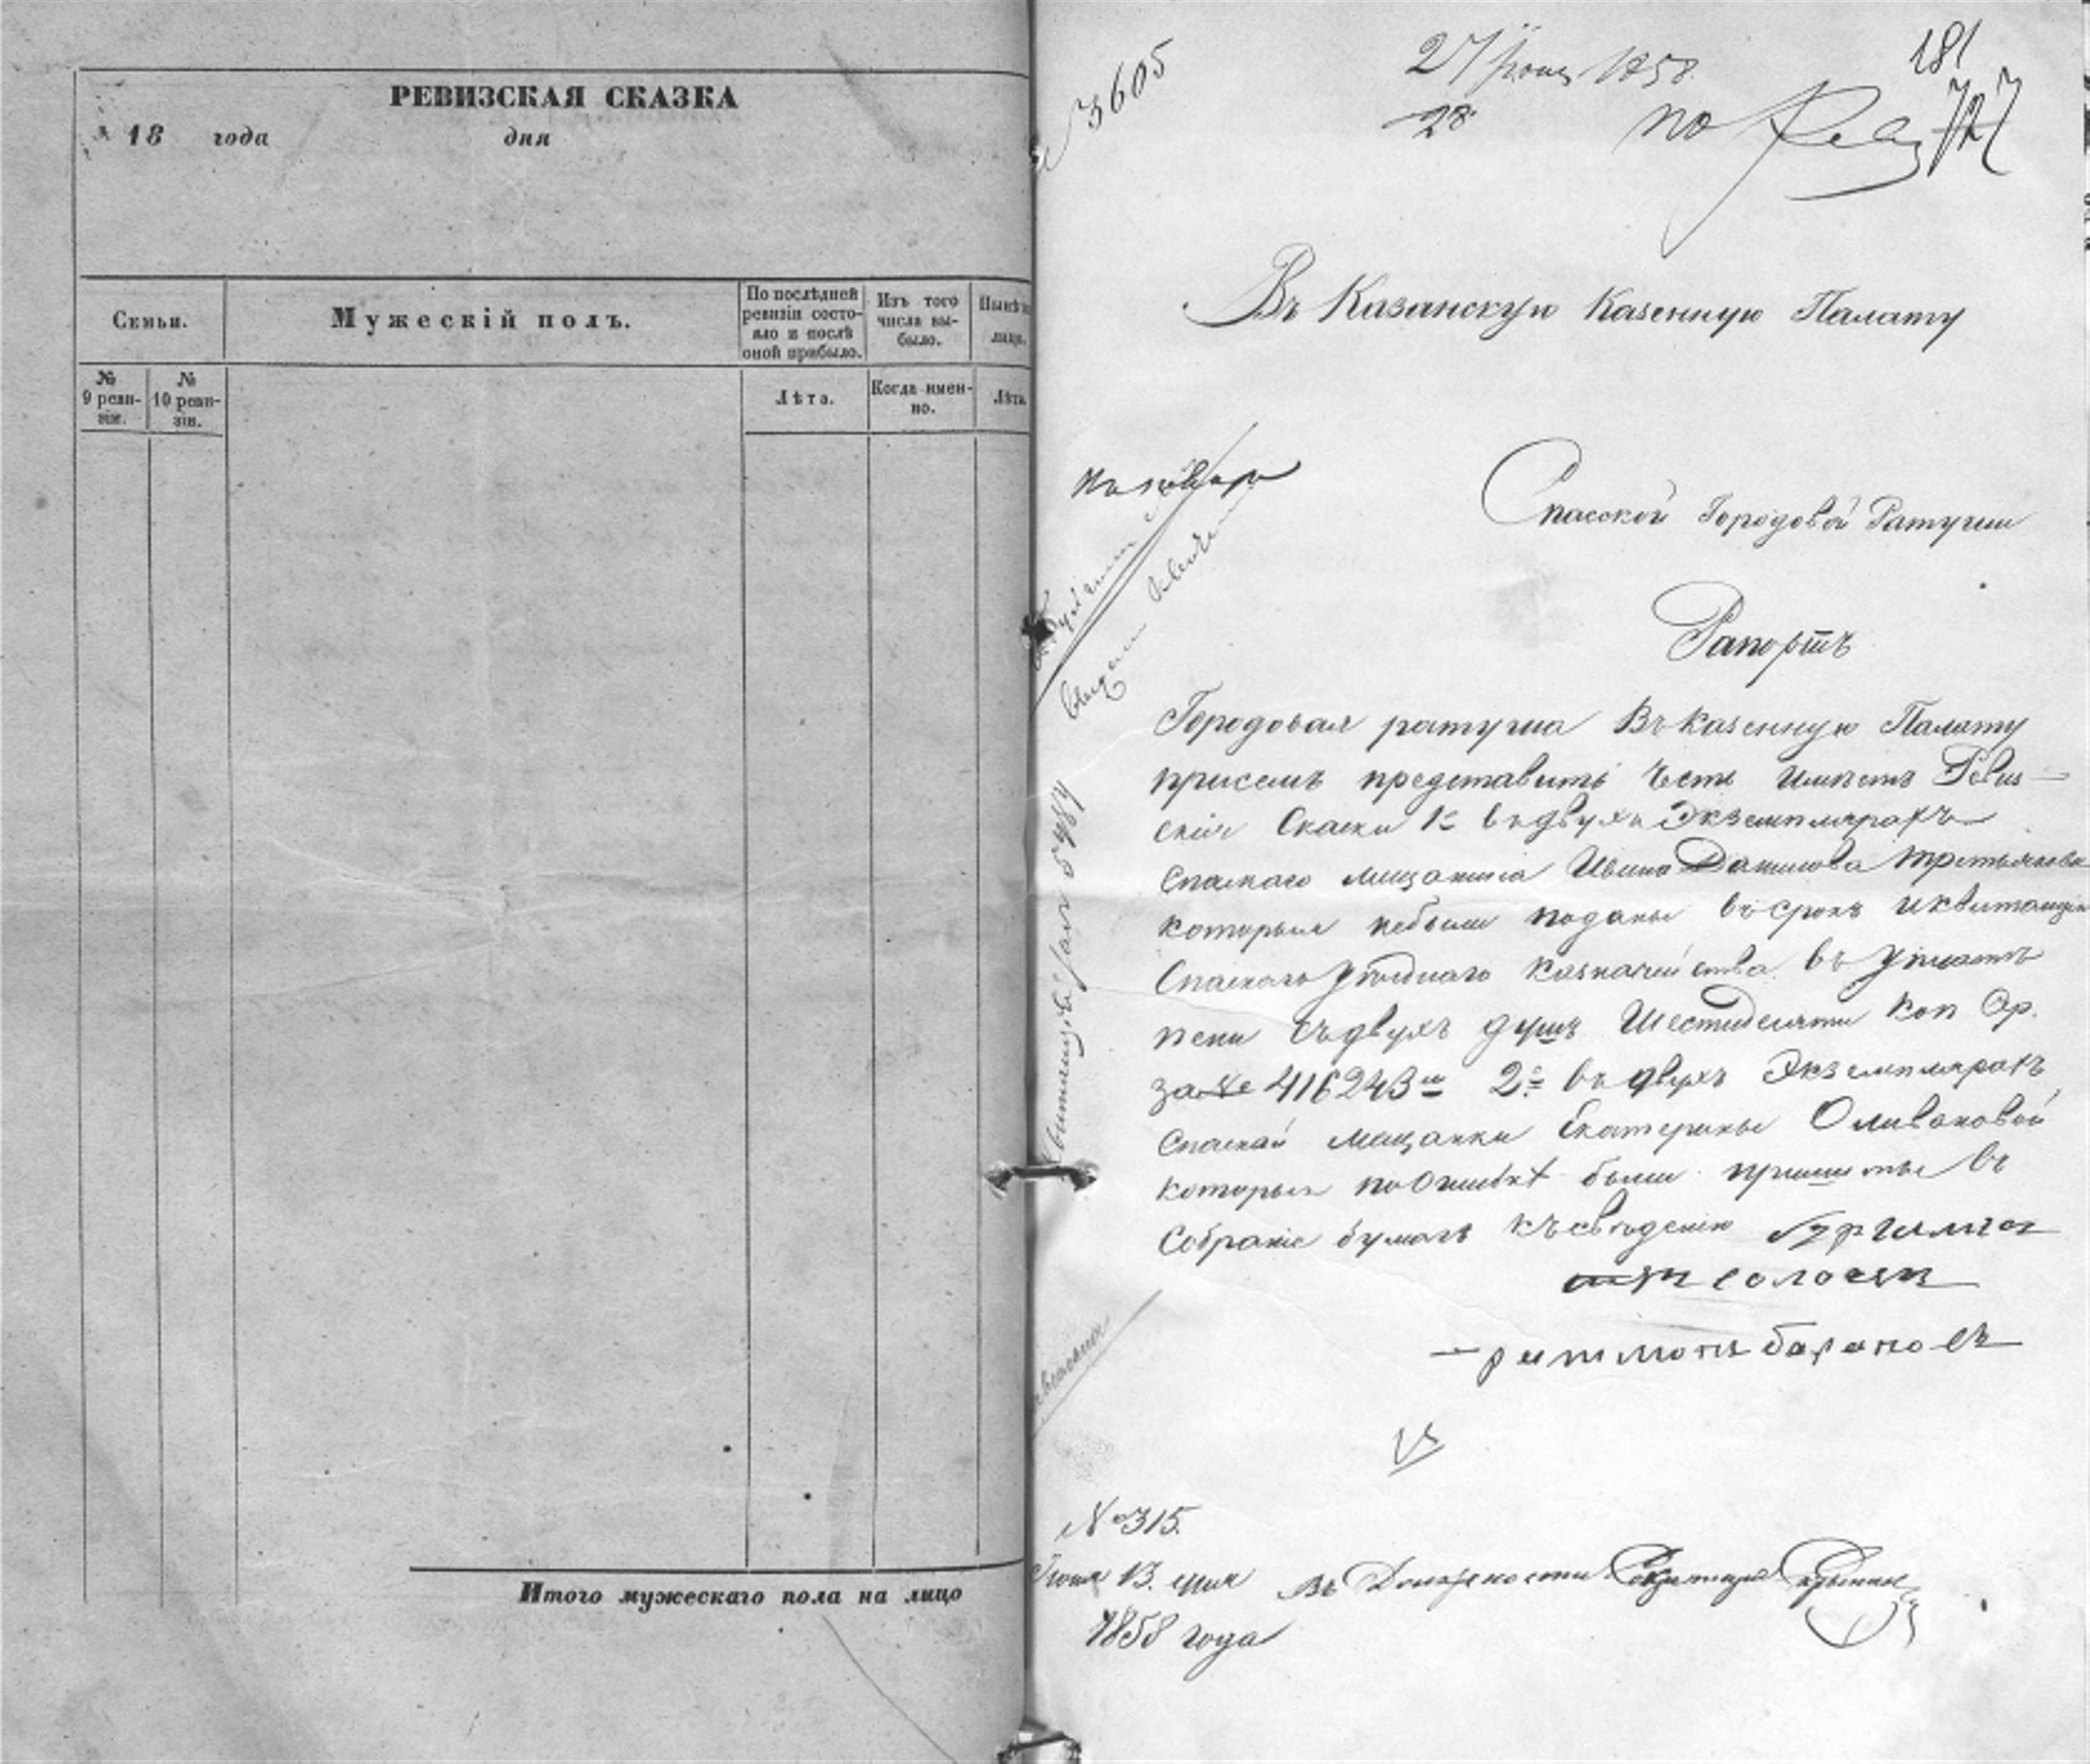 РЕВИЗСКАЯ СКАЗКА
18 года дня
Семьи.
Мужескій полъ.
По послѣдней ревизіи состояло и послѣ оной прибыло.
Изъ того числа выбыло.
№ 9 ревизіи.
№ 10 ревизіи.
Лѣта.
Когда имен-
но.
Лѣта.
Итого мужескаго пола на лицо
3605
27 Іюня 1858
28
по
181
727
Въ Казанскую Казенную Палату
Спасской Городовой Ратуши
Рапортъ
Городовая ратуша Въ Казенную Палату
присемъ представить Честь имѣетъ Ревиз-
скія Скаски 1е въ двухъ Экземплярахъ
Спаскаго мещанина Ивана Данилова Третьякова
которыя небыли поданы въ срокъ и квитанцію
Спаскаго уѣзднаго казначейства въ
пени съ двухъ душъ Шестидесяти коп Ср.
за № 416243м 2е въ двухъ Экземплярахъ
Спаской мещанки Екатерины Оливановой
которыя по Ошибкѣ были пришиты въ
Собраніе бумагъ къ свѣденію
барановъ
№ 315.
Іюня 13. дня
1858 года
Въ Должности Секретаря